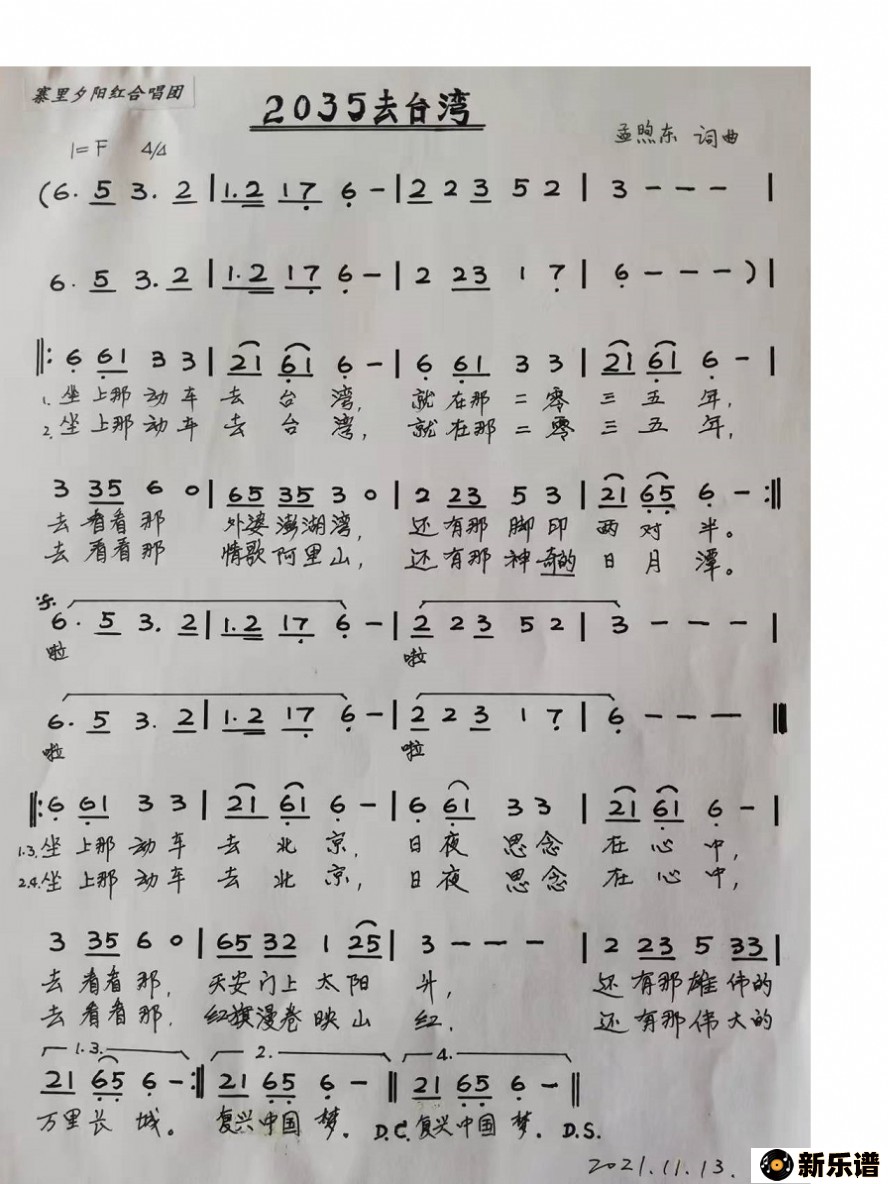 寨里夕阳红合唱团
2035去台湾
1=F 4/4
孟煦东 词曲
(6. 5 3. 2 | 1.2 17 6 - | 2 2 3 5 2 | 3 - - - |
6. 5 3. 2 | 1.2 17 6 - | 2 23 1 7 | 6 - - - ) |
‖: 6 61 3 3 | 21 61 6 - | 6 61 3 3 | 21 61 6 - |
1.坐上那动车去台湾，就在那二零三五年，
2.坐上那动车去台湾，就在那二零三五年，
3 35 6 0 | 65 35 3 0 | 2 23 5 3 | 21 65 6 - :‖
去看看那外婆澎湖湾，还有那脚印两对半。
去看看那情歌阿里山，还有那神奇的日月潭。
6. 5 3. 2 | 1.2 17 6 - | 2 2 3 5 2 | 3 - - - |
啦 啦
6. 5 3. 2 | 1.2 17 6 - | 2 2 3 1 7 | 6 - - - ‖
啦 啦
‖: 6 61 3 3 | 21 61 6 - | 6 61 3 3 | 21 61 6 - |
1.3.坐上那动车去北京，日夜思念在心中，
2.4.坐上那动车去北京，日夜思念在心中，
3 35 6 0 | 65 32 1 25 | 3 - - - | 2 23 5 33 |
去看看那，天安门上太阳升，还有那雄伟的
去看看那，红旗漫卷映山红，还有那伟大的
1.3. 2. 4.
21 65 6 - :‖ 21 65 6 - ‖ 21 65 6 - ‖
万里长城。复兴中国梦。D.C.复兴中国梦。D.S.
2021.11.13.
新乐谱